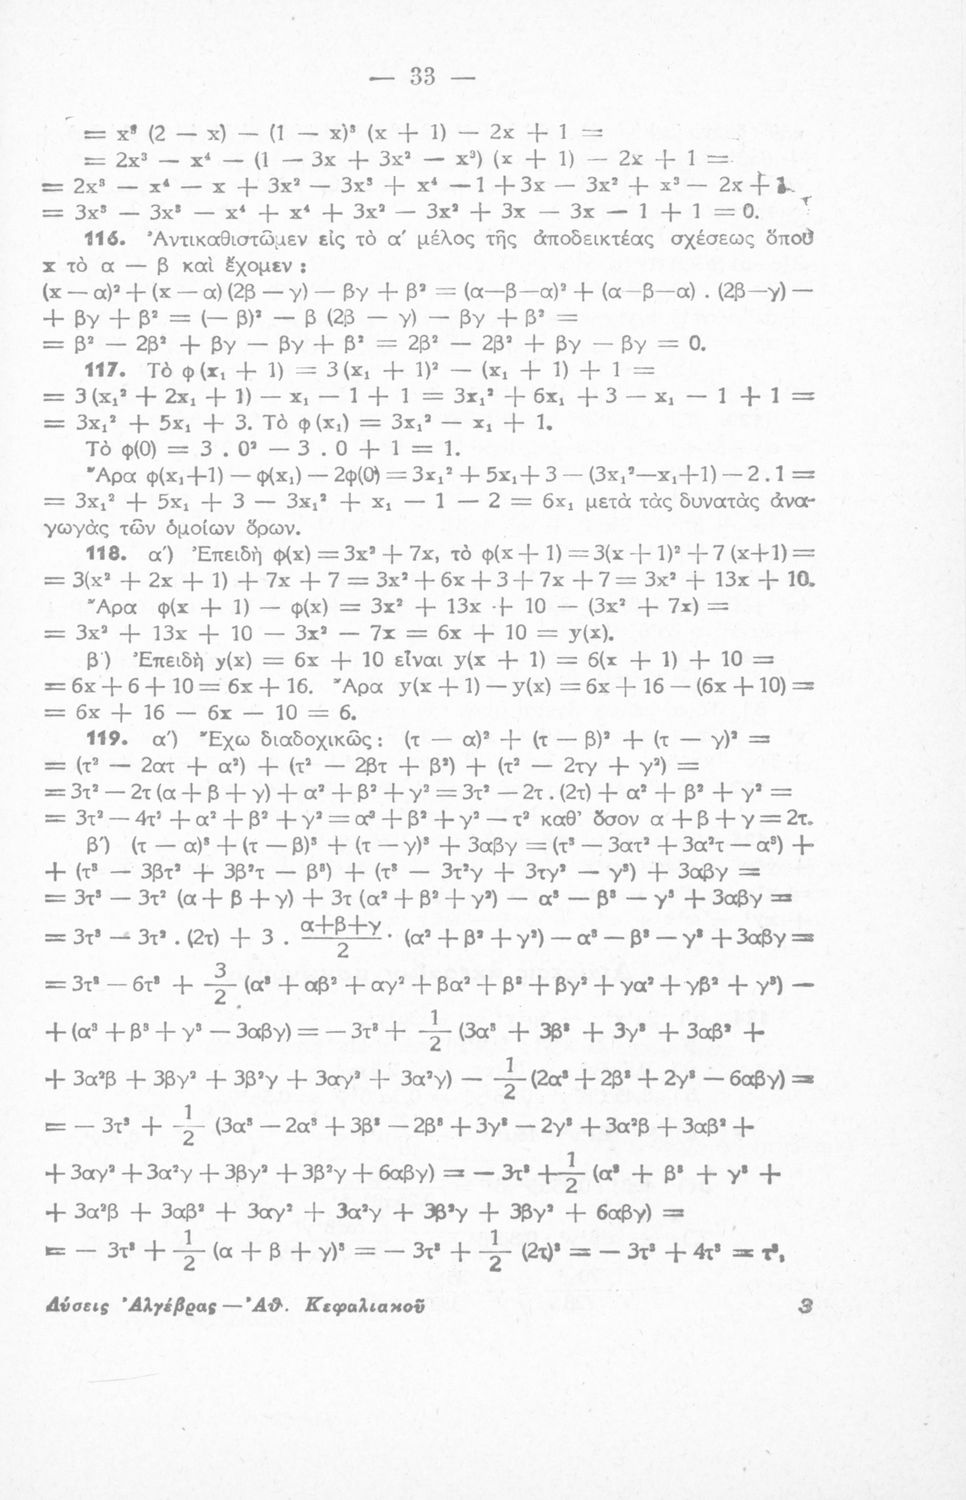 — 33 —
= x³ (2 — x) — (1 — x)³ (x + 1) — 2x + 1 =
= 2x³ — x⁴ — (1 — 3x + 3x² — x³) (x + 1) — 2x + 1 =
= 2x³ — x⁴ — x + 3x² — 3x³ + x⁴ — 1 + 3x — 3x² + x³ — 2x + 1
= 3x³ — 3x³ — x⁴ + x⁴ + 3x² — 3x² + 3x — 3x — 1 + 1 = 0.
116. Ἀντικαθιστῶμεν εἰς τὸ α′ μέλος τῆς ἀποδεικτέας σχέσεως ὅπου
x τὸ α — β καὶ ἔχομεν :
(x — α)² + (x — α) (2β — γ) — βγ + β² = (α—β—α)² + (α—β—α) . (2β—γ) —
+ βγ + β² = (— β)² — β (2β — γ) — βγ + β² =
= β² — 2β² + βγ — βγ + β² = 2β² — 2β² + βγ — βγ = 0.
117. Τὸ φ (x₁ + 1) = 3 (x₁ + 1)² — (x₁ + 1) + 1 =
= 3 (x₁² + 2x₁ + 1) — x₁ — 1 + 1 = 3x₁² + 6x₁ + 3 — x₁ — 1 + 1 =
= 3x₁² + 5x₁ + 3. Τὸ φ (x₁) = 3x₁² — x₁ + 1.
Τὸ φ(0) = 3 . 0² — 3 . 0 + 1 = 1.
Ἄρα φ(x₁+1) — φ(x₁) — 2φ(0) = 3x₁² + 5x₁ + 3 — (3x₁²—x₁+1) — 2 . 1 =
= 3x₁² + 5x₁ + 3 — 3x₁² + x₁ — 1 — 2 = 6x₁ μετὰ τὰς δυνατὰς ἀνα-
γωγὰς τῶν ὁμοίων ὅρων.
118. α′) Ἐπειδὴ φ(x) = 3x² + 7x, τὸ φ(x + 1) = 3(x + 1)² + 7 (x+1) =
= 3(x² + 2x + 1) + 7x + 7 = 3x² + 6x + 3 + 7x + 7 = 3x² + 13x + 10.
Ἄρα φ(x + 1) — φ(x) = 3x² + 13x + 10 — (3x² + 7x) =
= 3x² + 13x + 10 — 3x² — 7x = 6x + 10 = y(x).
β′) Ἐπειδὴ y(x) = 6x + 10 εἶναι y(x + 1) = 6(x + 1) + 10 =
= 6x + 6 + 10 = 6x + 16. Ἄρα y(x + 1) — y(x) = 6x + 16 — (6x + 10) =
= 6x + 16 — 6x — 10 = 6.
119. α′) Ἔχω διαδοχικῶς : (τ — α)² + (τ — β)² + (τ — γ)² =
= (τ² — 2ατ + α²) + (τ² — 2βτ + β²) + (τ² — 2τγ + γ²) =
= 3τ² — 2τ (α + β + γ) + α² + β² + γ² = 3τ² — 2τ . (2τ) + α² + β² + γ² =
= 3τ² — 4τ² + α² + β² + γ² = α² + β² + γ² — τ² καθ’ ὅσον α + β + γ = 2τ.
β′) (τ — α)³ + (τ — β)³ + (τ — γ)³ + 3αβγ = (τ³ — 3ατ² + 3α²τ — α³) +
+ (τ³ — 3βτ² + 3β²τ — β³) + (τ³ — 3τ²γ + 3τγ² — γ³) + 3αβγ =
= 3τ³ — 3τ² (α + β + γ) + 3τ (α² + β² + γ²) — α³ — β³ — γ³ + 3αβγ =
= 3τ³ — 3τ² . (2τ) + 3 . α+β+γ/2 . (α² + β² + γ²) — α³ — β³ — γ³ + 3αβγ =
= 3τ³ — 6τ³ + 3/2 (α³ + αβ² + αγ² + βα² + β³ + βγ² + γα² + γβ² + γ³) —
+ (α³ + β³ + γ³ — 3αβγ) = — 3τ³ + 1/2 (3α³ + 3β³ + 3γ³ + 3αβ² +
+ 3α²β + 3βγ² + 3β²γ + 3αγ² + 3α²γ) — 1/2 (2α³ + 2β³ + 2γ³ — 6αβγ) =
= — 3τ³ + 1/2 (3α³ — 2α³ + 3β³ — 2β³ + 3γ³ — 2γ³ + 3α²β + 3αβ² +
+ 3αγ² + 3α²γ + 3βγ² + 3β²γ + 6αβγ) = — 3τ³ + 1/2 (α³ + β³ + γ³ +
+ 3α²β + 3αβ² + 3αγ² + 3α²γ + 3β²γ + 3βγ² + 6αβγ) =
= — 3τ³ + 1/2 (α + β + γ)³ = — 3τ³ + 1/2 (2τ)³ = — 3τ³ + 4τ³ = τ³,
Λύσεις Ἀλγέβρας — Ἀθ. Κεφαλιακοῦ 3